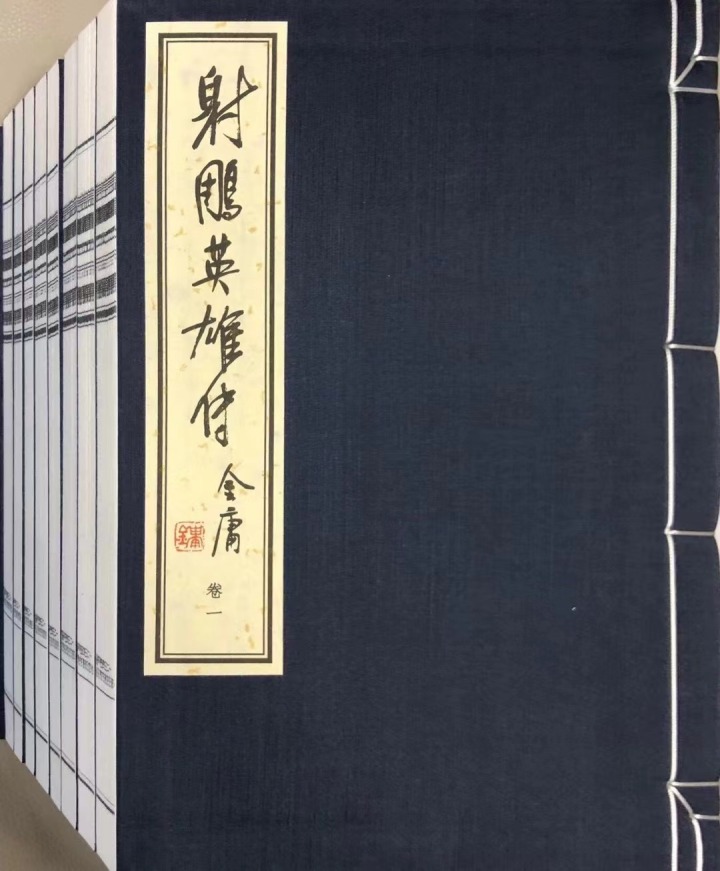 射鵰英雄傳
金庸
卷一